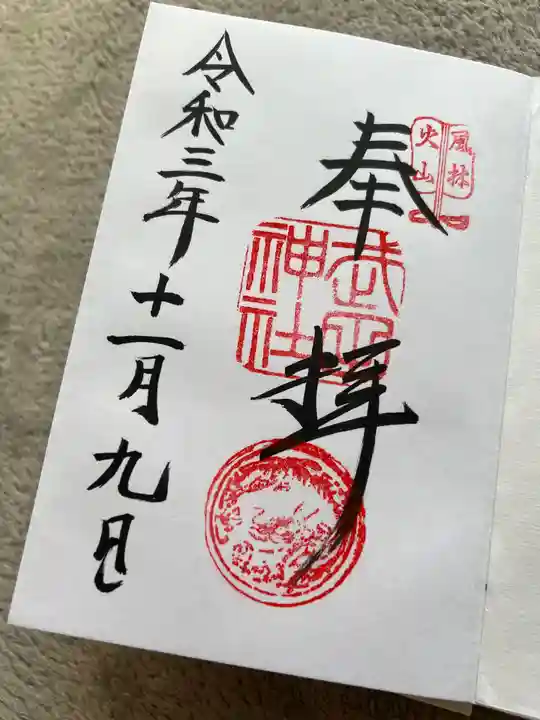 風林
火山
奉拝
武田
神社
令和三年十一月九日